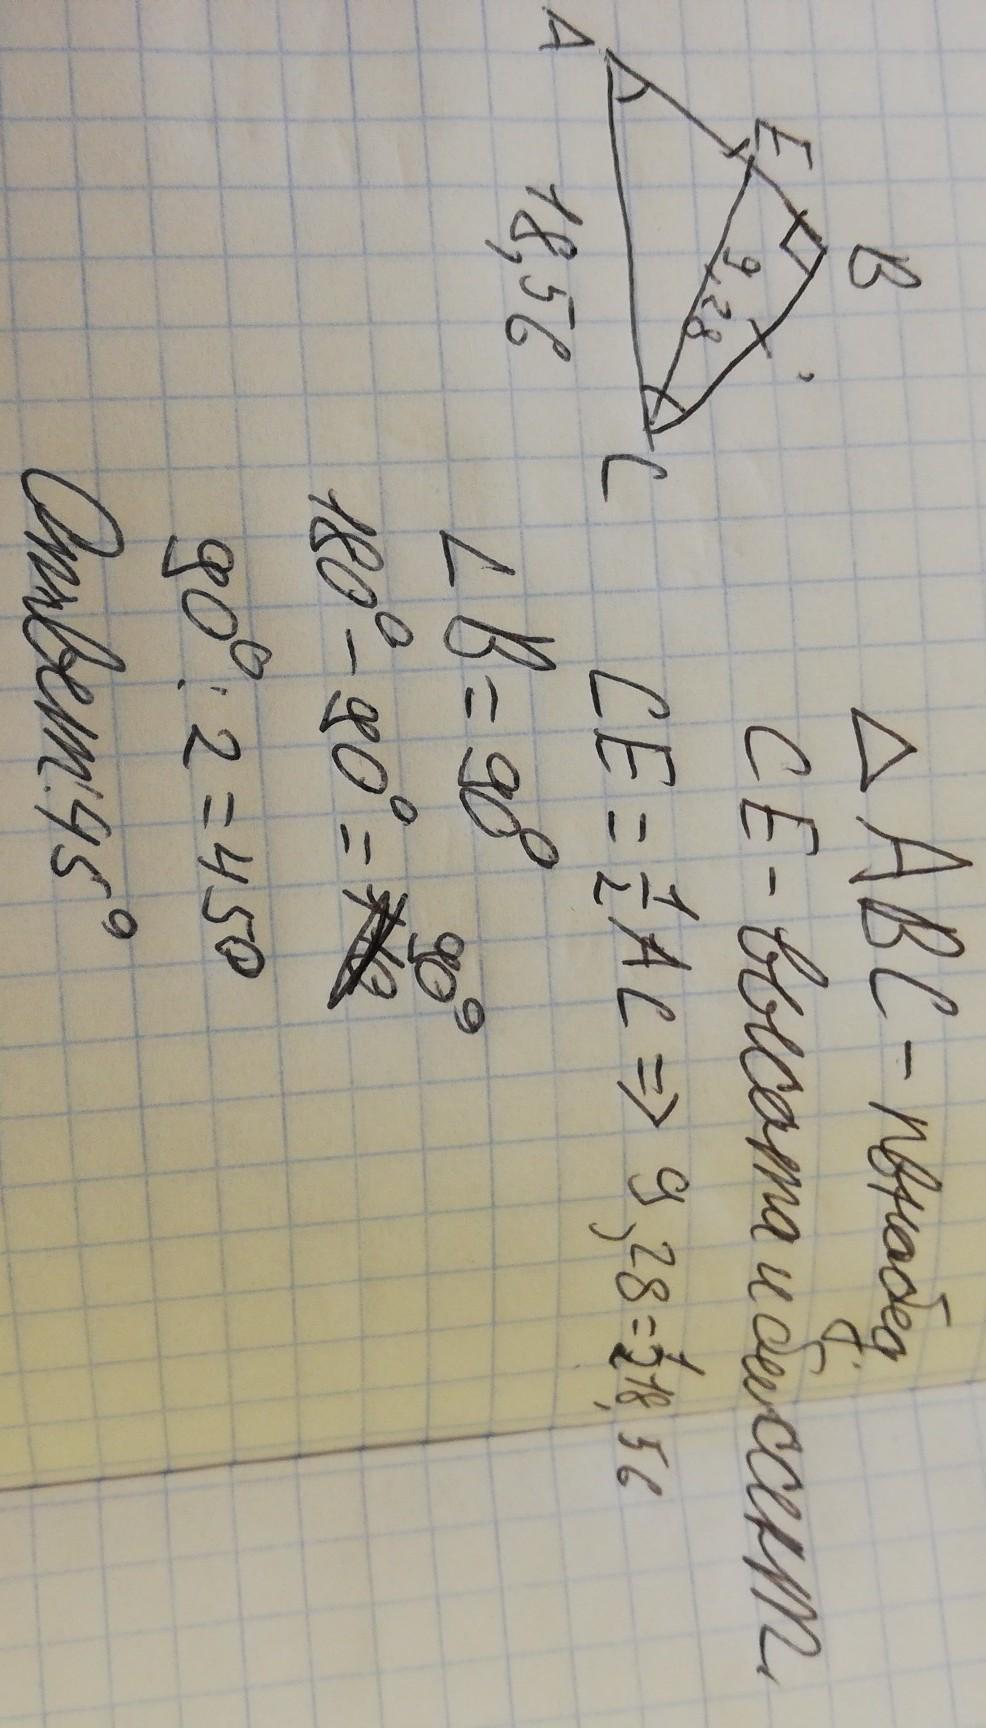 B
E
9,28
A
C
18,56
△ ABC - равнобед.
CE - высота и биссект.
CE = 1/2 AC ⇒ 9,28 = 1/2 18,56
∠B = 90°
180° - 90° = 90°
90° : 2 = 45°
Ответ: 45°